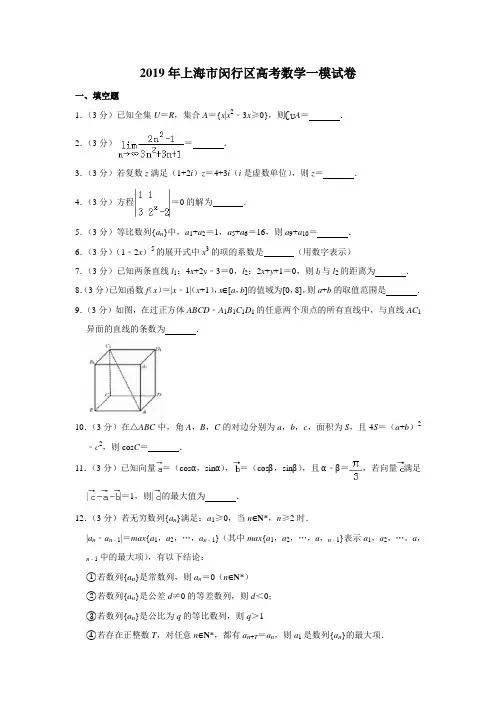 2019年上海市闵行区高考数学一模试卷
一、填空题
1.(3分)已知全集U=R,集合A={x|x²﹣3x≥0},则∁UA=   .
2.(3分) lim n→∞ (2n²-1)/(3n²+3n+1)=   .
3.(3分)若复数z满足(1+2i)z=4+3i(i是虚数单位),则z=   .
4.(3分)方程|1 1; 3 2ˣ-2|=0的解为   .
5.(3分)等比数列{aₙ}中,a₁+a₂=1,a₅+a₆=16,则a₉+a₁₀=   .
6.(3分)(1﹣2x)⁵的展开式中x³的项的系数是   (用数字表示)
7.(3分)已知两条直线l₁:4x+2y﹣3=0,l₂:2x+y+1=0,则l₁与l₂的距离为   .
8.(3分)已知函数f(x)=|x﹣1|(x+1),x∈[a,b]的值域为[0,8],则a+b的取值范围是   .
9.(3分)如图,在过正方体ABCD﹣A₁B₁C₁D₁的任意两个顶点的所有直线中,与直线AC₁
异面的直线的条数为   .
C₁
D₁
B₁
A₁
C
D
B
A
10.(3分)在△ABC中,角A,B,C的对边分别为a,b,c,面积为S,且4S=(a+b)²
﹣c²,则cosC=   .
11.(3分)已知向量a=(cosα,sinα),b=(cosβ,sinβ),且α﹣β=π/3,若向量c满足
|c-a-b|=1,则|c|的最大值为   .
12.(3分)若无穷数列{aₙ}满足:a₁≥0,当n∈N*,n≥2时.
|aₙ﹣aₙ₋₁|=max{a₁,a₂,…,aₙ₋₁}(其中max{a₁,a₂,…,a,ₙ₋₁}表示a₁,a₂,…,a,
ₙ₋₁中的最大项),有以下结论:
①若数列{aₙ}是常数列,则aₙ=0(n∈N*)
②若数列{aₙ}是公差d≠0的等差数列,则d<0;
③若数列{aₙ}是公比为q的等比数列,则q>1
④若存在正整数T,对任意n∈N*,都有aₙ₊T=aₙ,则a₁是数列{aₙ}的最大项.